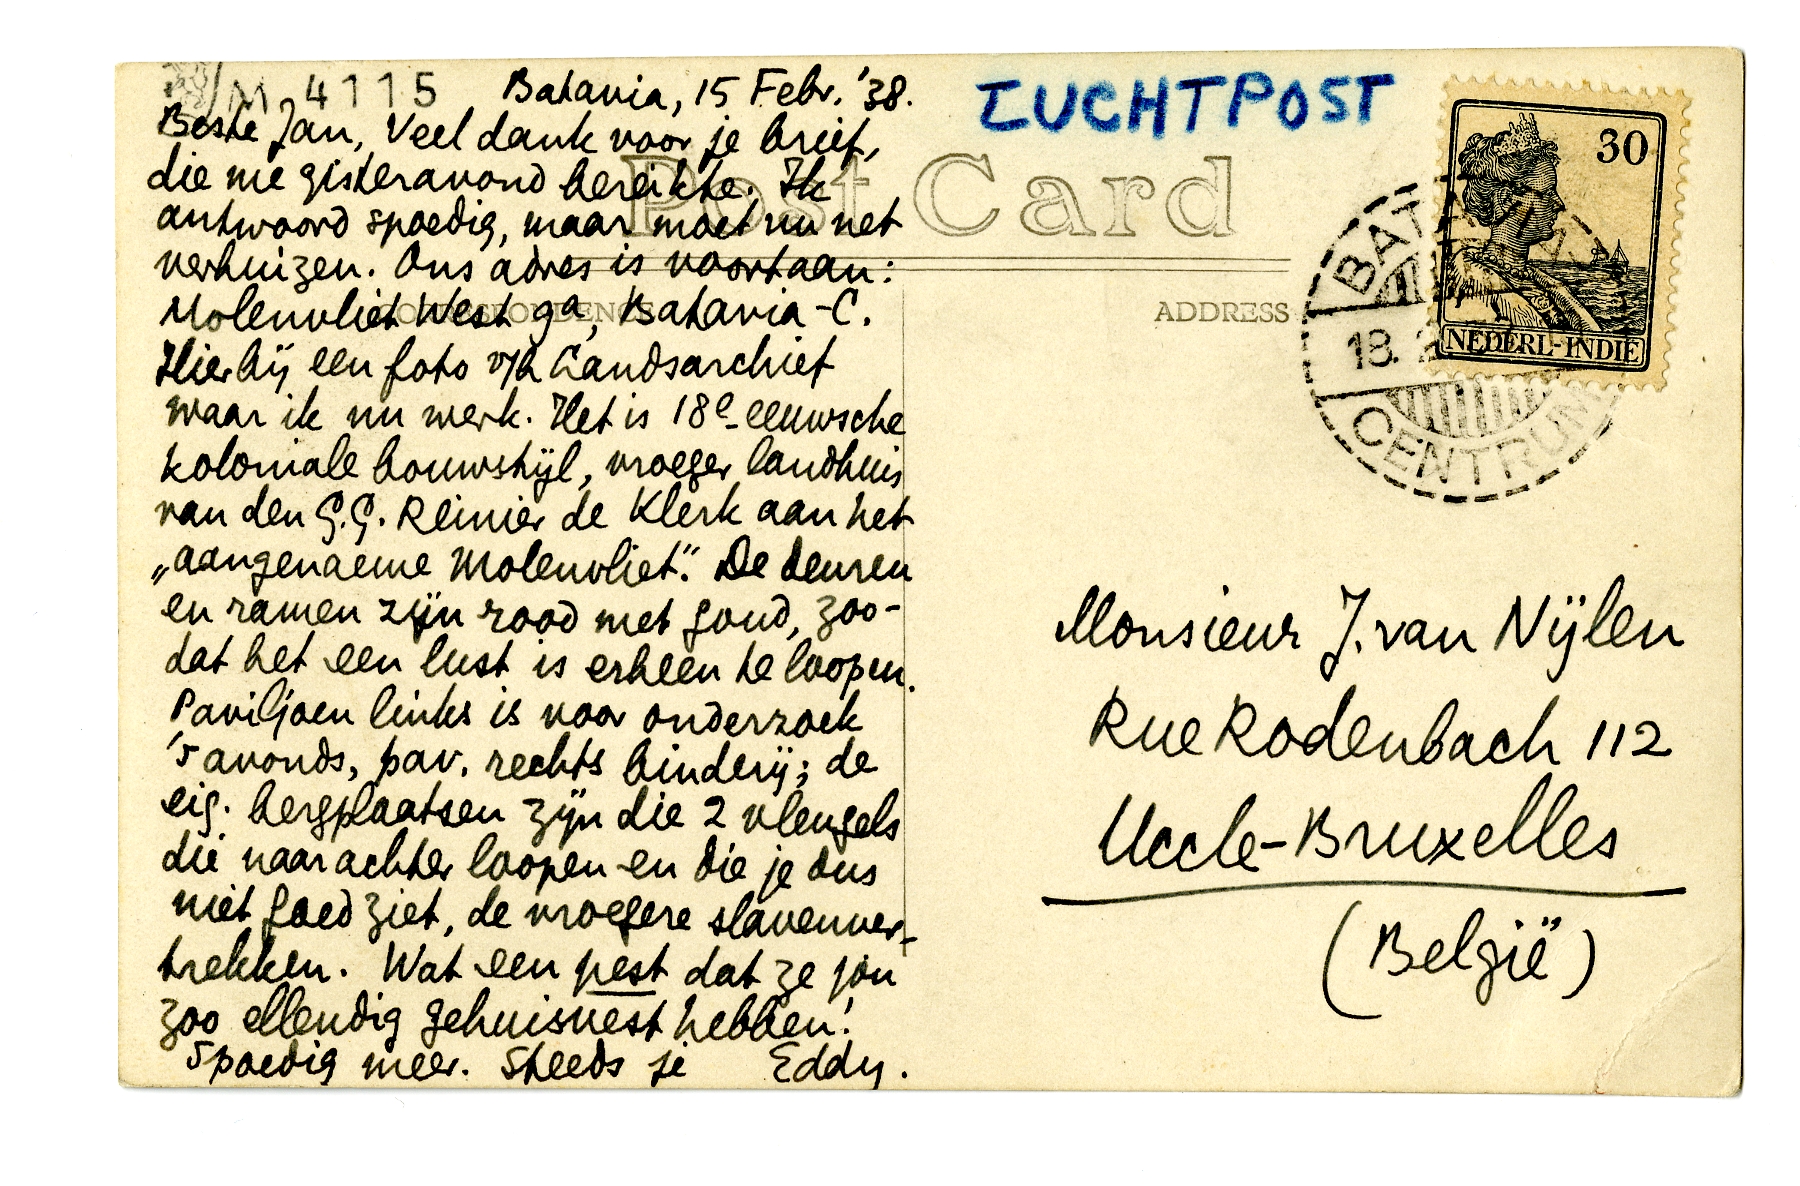 M 4115
Batavia, 15 Febr. '38.
Beste Jan, Veel dank voor je brief,
die me gisteravond bereikte. Ik
antwoord spoedig, maar moet nu net
verhuizen. Ons adres is voortaan:
Molenvliet West 9a, Batavia-C.
Hierbij een foto v/h Landsarchief
waar ik nu werk. Het is 18e-eeuwsche
koloniale bouwstijl, vroeger landhuis
van den G.G. Reinier de Klerk aan het
„aangenaeme Molenvliet". De deuren
en ramen zijn rood met goud, zoo-
dat het een lust is erheen te loopen.
Paviljoen links is voor onderzoek
's avonds, pav. rechts binderij; de
eig. bergplaatsen zijn die 2 vleugels
die naar achter loopen en die je dus
niet goed ziet, de vroegere slavenver-
trekken. Wat een pest dat ze jou
zoo ellendig gehuisvest hebben!
Spoedig meer. Steeds je Eddy.
LUCHTPOST
Post Card
CORRESPONDENCE
ADDRESS
30
NEDERL-INDIE
BATAVIA
18. 2
CENTRUM
Monsieur J. van Nijlen
Rue Rodenbach 112
Uccle-Bruxelles
(België)